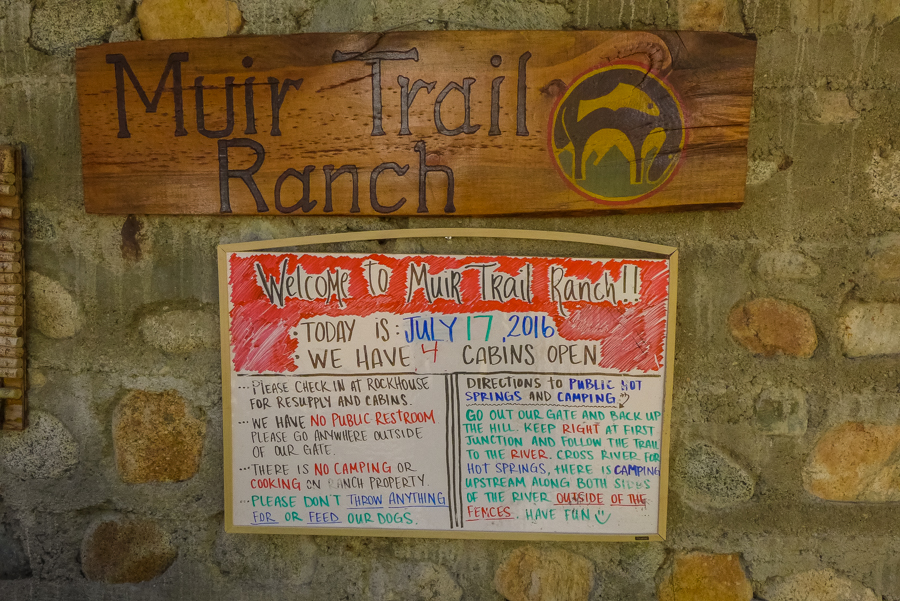 Muir Trail
Ranch
Welcome to Muir Trail Ranch!!
TODAY IS: JULY 17, 2016
WE HAVE 4 CABINS OPEN
...PLEASE CHECK IN AT ROCKHOUSE
FOR RESUPPLY AND CABINS.
...WE HAVE NO PUBLIC RESTROOM
PLEASE GO ANYWHERE OUTSIDE
OF OUR GATE.
...THERE IS NO CAMPING OR
COOKING ON RANCH PROPERTY.
...PLEASE DON'T THROW ANYTHING
FOR OR FEED OUR DOGS.
DIRECTIONS TO PUBLIC HOT
SPRINGS AND CAMPING
GO OUT OUR GATE AND BACK UP
THE HILL. KEEP RIGHT AT FIRST
JUNCTION AND FOLLOW THE TRAIL
TO THE RIVER. CROSS RIVER FOR
HOT SPRINGS, THERE IS CAMPING
UPSTREAM ALONG BOTH SIDES
OF THE RIVER OUTSIDE OF THE
FENCES. HAVE FUN